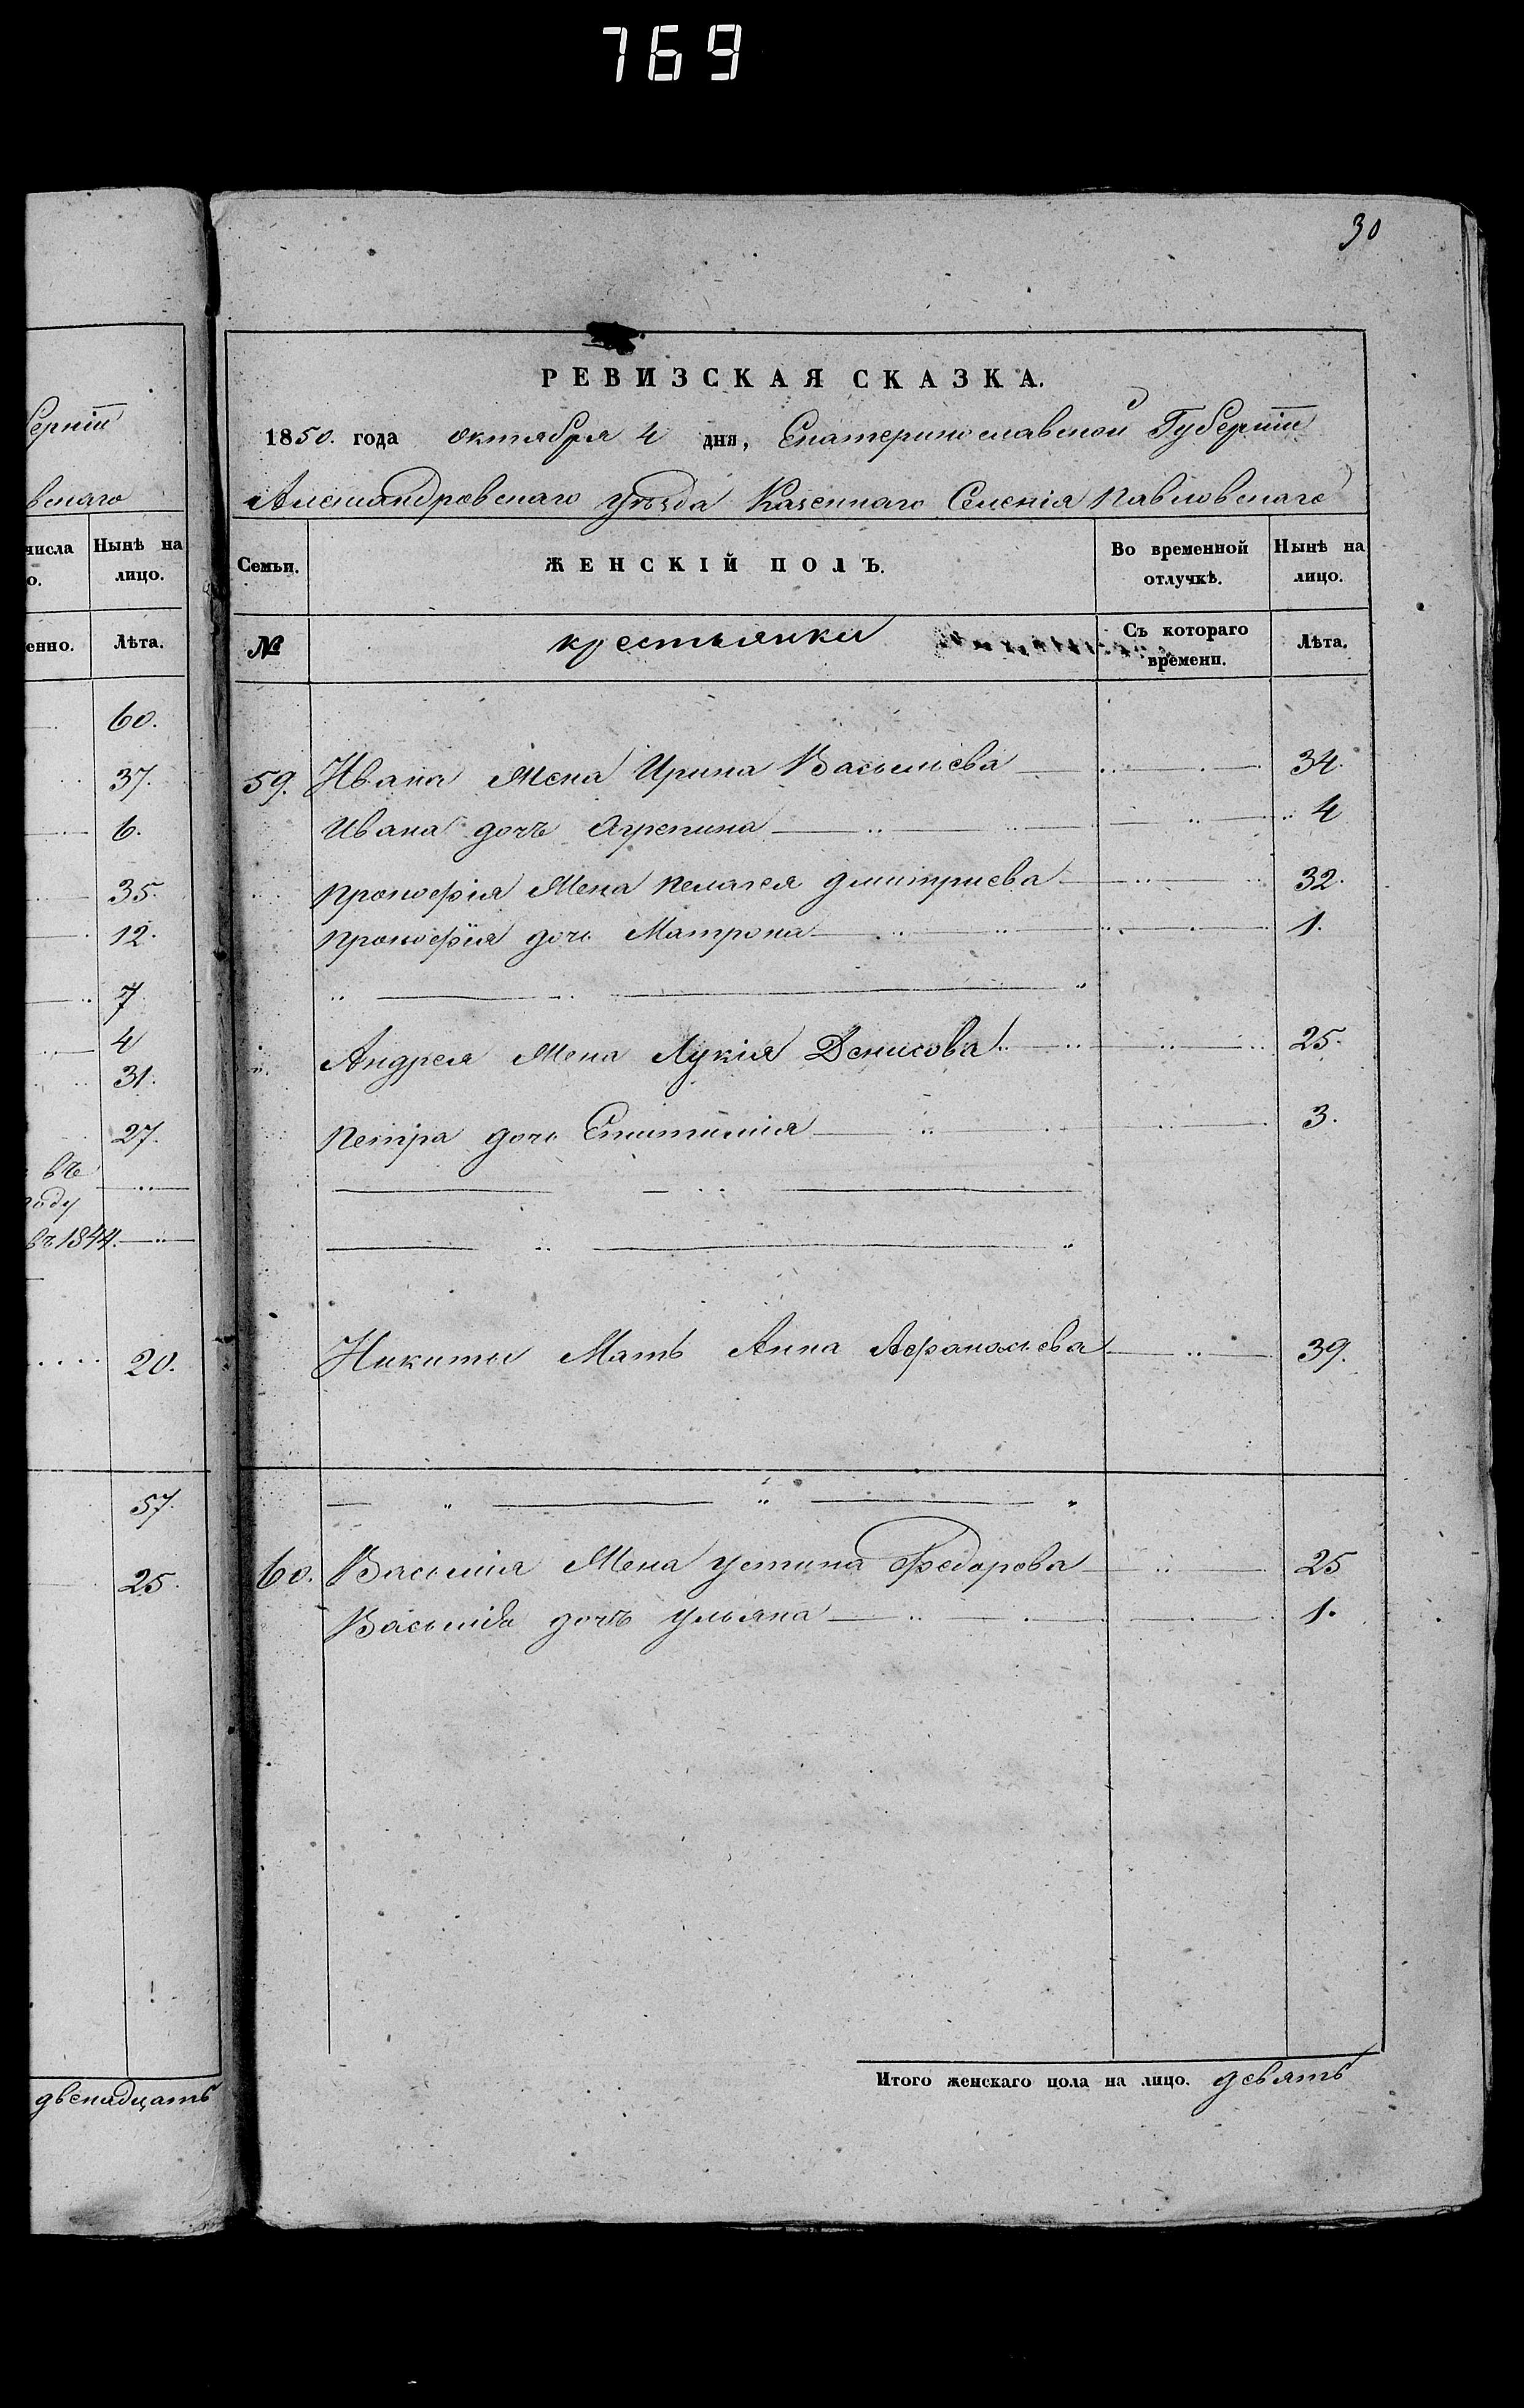 769
30
РЕВИЗСКАЯ СКАЗКА.
1850. года октября 4 дня, Екатеринославской Губерніи
Александровскаго уѣзда Казеннаго Селенія Павловскаго
Семьи.
ЖЕНСКІЙ ПОЛЪ.
Во временной отлучкѣ.
Нынѣ на лицо.
№
крестьянки
Съ котораго времени.
Лѣта.
59. Ивана Жена Ирина Васильева 34.
Ивана дочь Агрепина 4
Прокофія Жена Пелагея Дмитриева 32.
Прокофія дочь Матрона 1.
Андрея Жена Лукія Денисова 25.
Петра дочь 3.
Никиты Мать Анна Афанасьева 39.
60. Василія Жена Устина Федорова 25
Василія дочь Ульяна 1.
Итого женскаго пола на лицо. девять
берніи
вскаго
числа
о.
Нынѣ на лицо.
енно.
Лѣта.
60.
37.
6.
35.
12.
7
4
31.
27.
въ
году
въ 1844.
20.
57.
25.
двенадцать